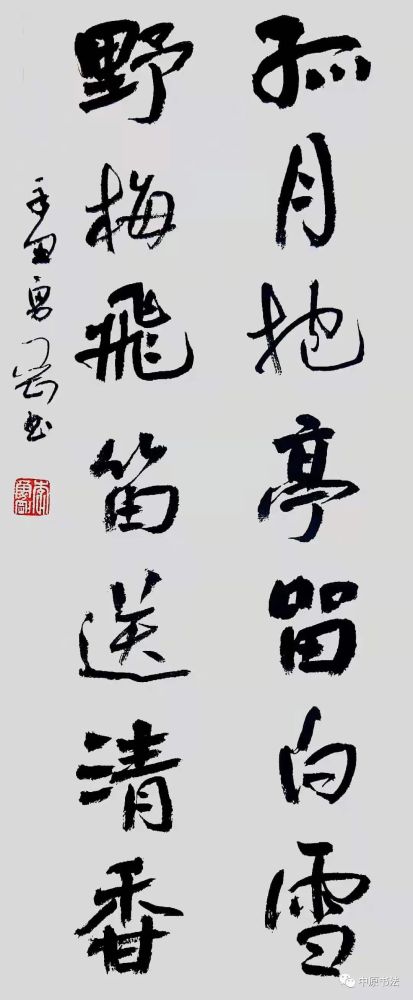 孤月抱亭留白雪
野梅飛笛送清香
中原书法